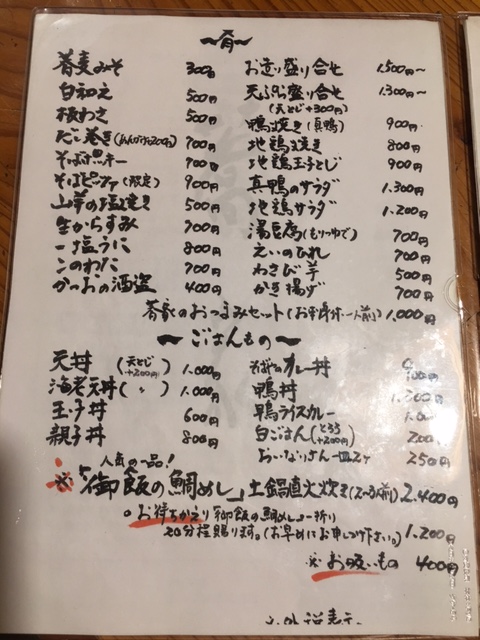 〜肴〜
蕎麦みそ 300円
白和え 500円
板わさ 500円
だし巻き(あんかけ+200円) 700円
そばクッキー 700円
そばピッツァ(限定) 900円
山芋の塩焼き 500円
生からすみ 700円
一塩うに 800円
このわた 700円
かつおの酒盗 400円
お造り盛り合せ 1,500円〜
天ぷら盛り合せ 1,300円〜
(天とじ+300円)
鴨焼き(真鴨) 900円
地鶏焼き 800円
地鶏玉子とじ 900円
真鴨のサラダ 1,300円
地鶏サラダ 1,200円
湯豆腐(もりつゆで) 700円
えいのひれ 700円
わさび芋 500円
かき揚げ 700円
蕎家のおつまみセット(お一人前) 1,000円
〜ごはんもの〜
天丼 (天とじ+200円) 1,000円
海老天丼(〃) 1,000円
玉子丼 600円
親子丼 800円
そばやのカレー丼
鴨丼
鴨ライスカレー
白ごはん(とろろ+200円) 200
おいなりさん一皿2ヶ 250円
人気の一品!
※「御飯の鯛めし」土鍋直火炊き(2〜3人前) 2,400円
○お持ちかえり 御飯の鯛めし一折り 1,200円
20分程賜ります。(お早めにお申しつけ下さい。)
※お吸いもの 400円